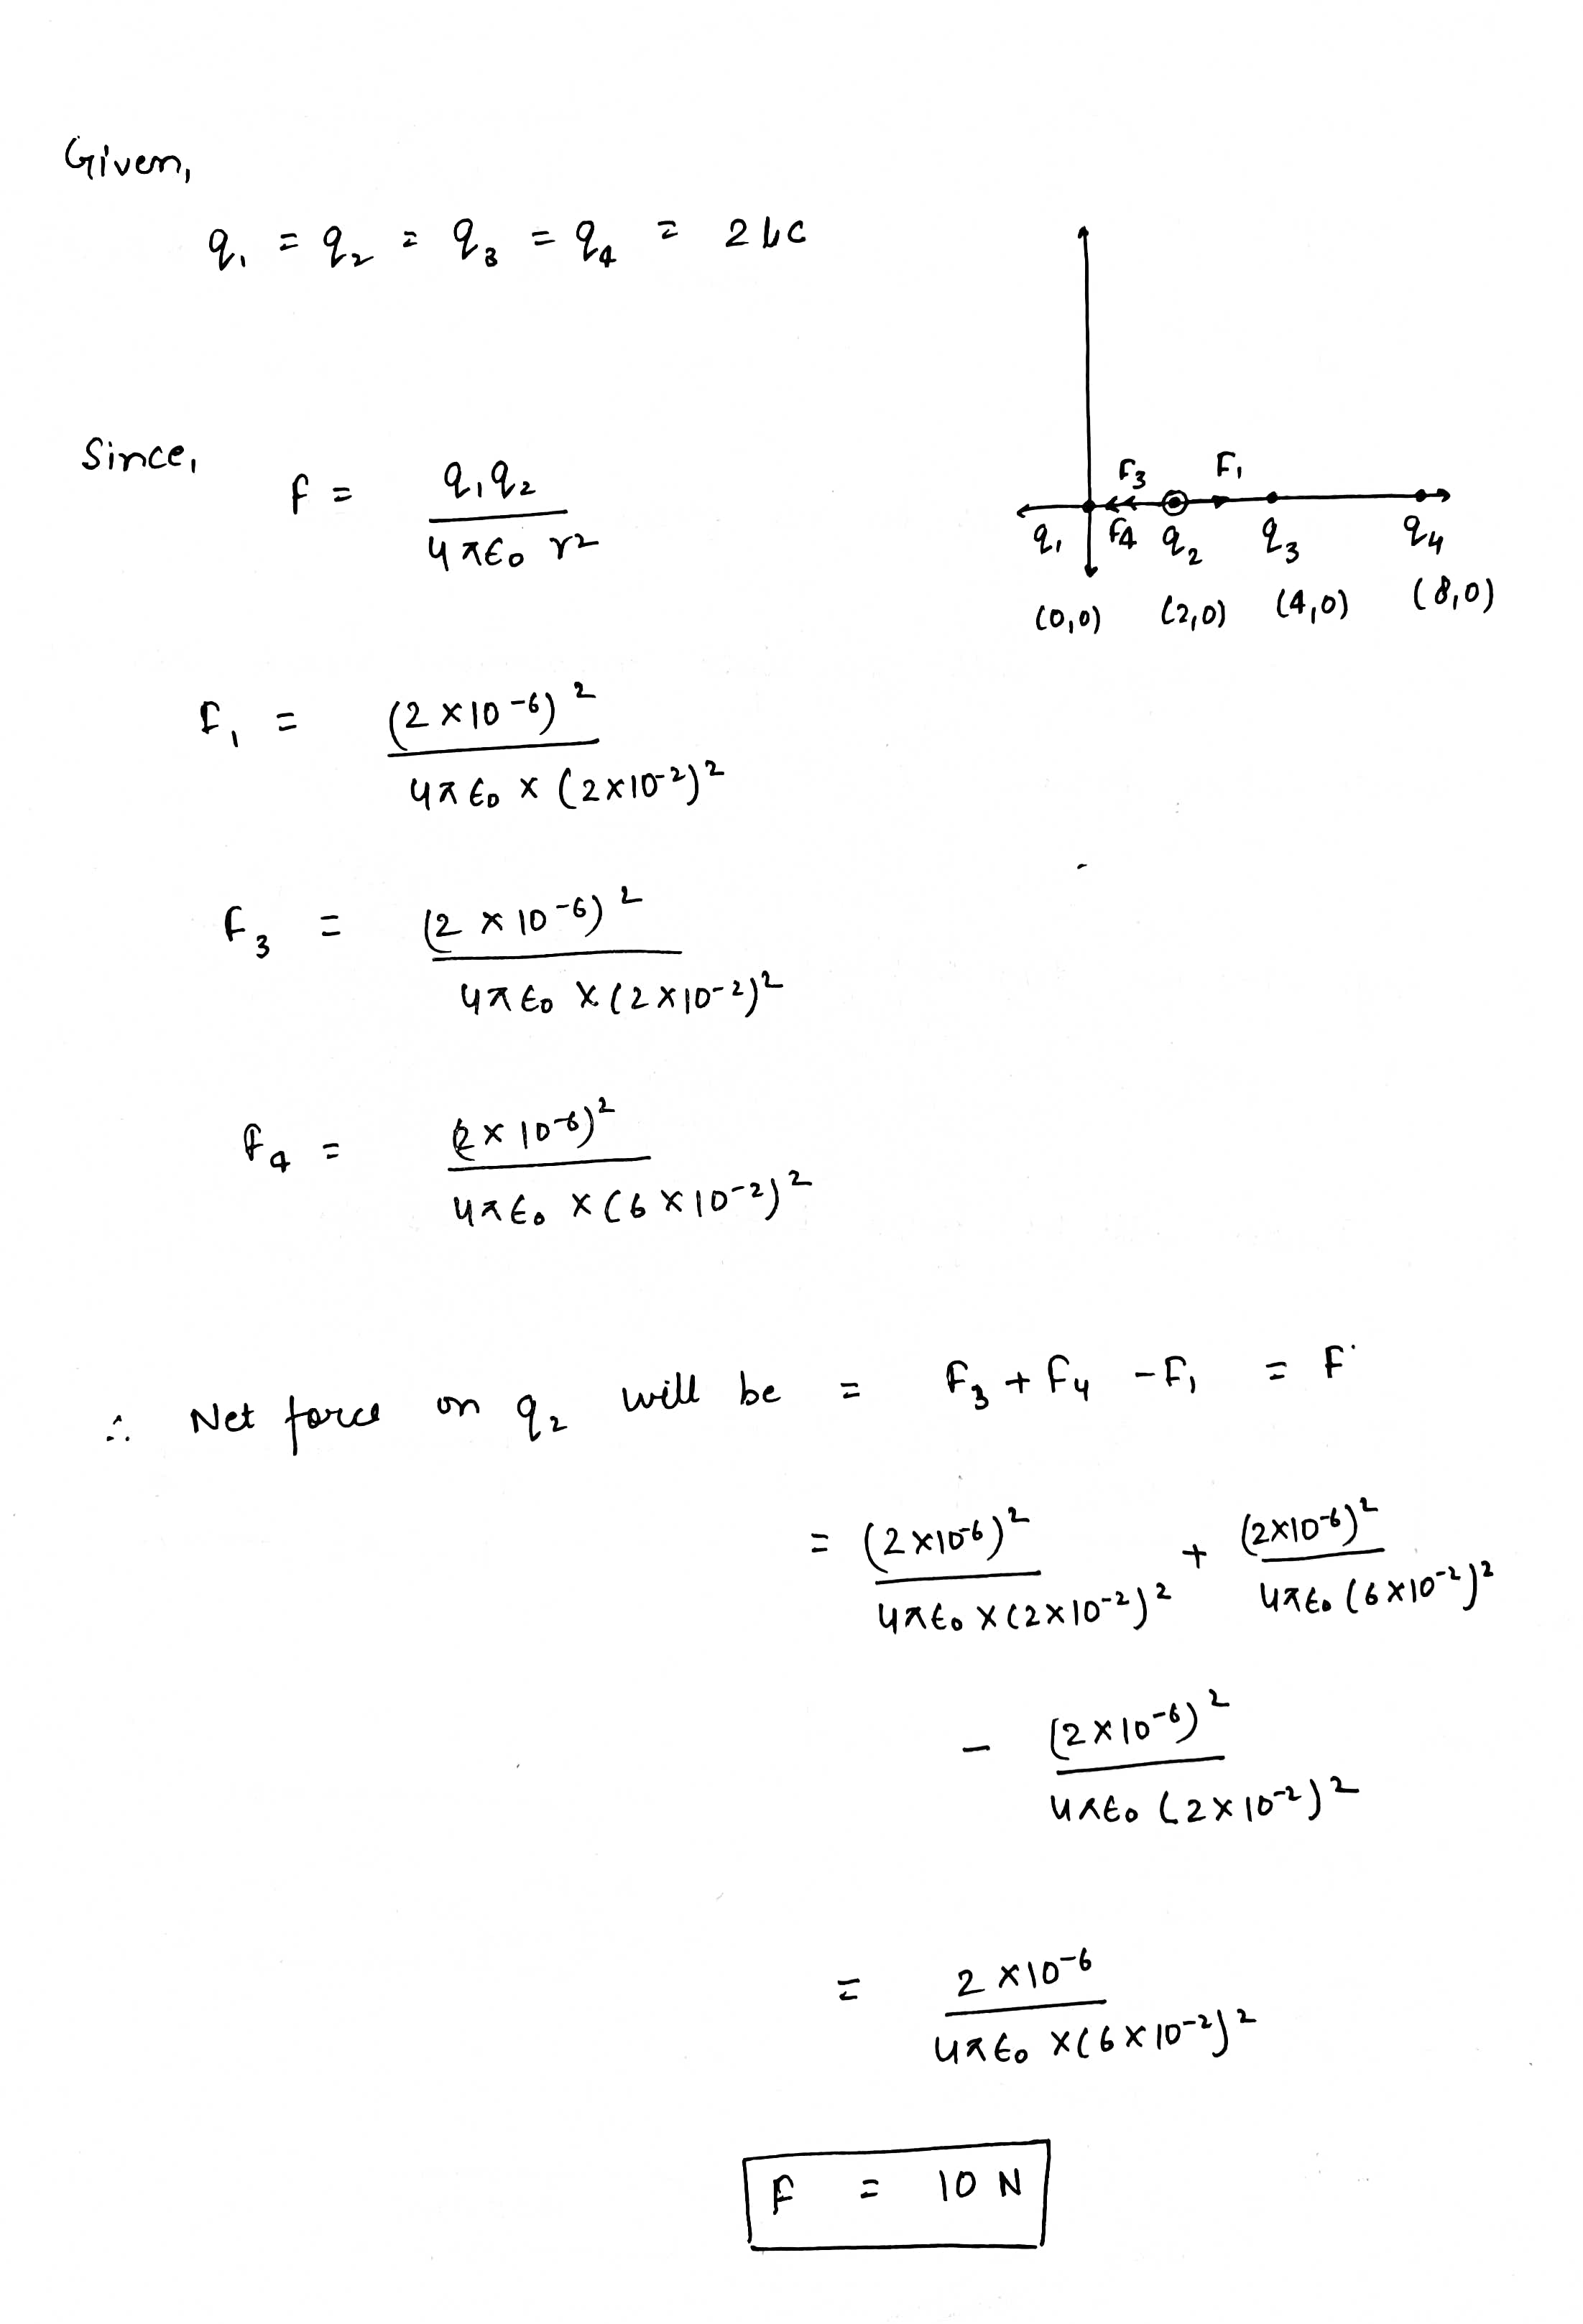 Given,
q₁ = q₂ = q₃ = q₄ = 2 μC
Since,
f = q₁q₂ / 4πϵ₀ r²
F₃ F₁
q₁ F4 q₂ q₃ q₄
(0,0) (2,0) (4,0) (8,0)
f₁ = (2 × 10⁻⁶)² / 4πϵ₀ × (2×10⁻²)²
f₃ = (2 × 10⁻⁶)² / 4πϵ₀ × (2 × 10⁻²)²
f₄ = (2 × 10⁻⁶)² / 4πϵ₀ × (6 × 10⁻²)²
∴ Net force on q₂ will be = f₃ + f₄ - F₁ = F
= (2 × 10⁻⁶)² / 4πϵ₀ × (2×10⁻²)² + (2×10⁻⁶)² / 4πϵ₀ (6 × 10⁻²)²
- (2 × 10⁻⁶)² / 4πϵ₀ (2 × 10⁻²)²
= 2 × 10⁻⁶ / 4πϵ₀ × (6 × 10⁻²)²
F = 10 N